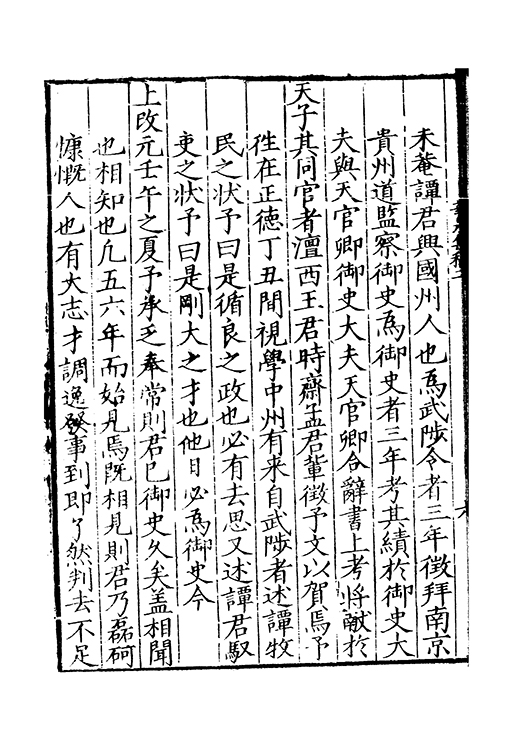 未菴譚君興國州人也爲武陟令者三年徵拜南京
貴州道監察御史爲御史者三年考其績於御史大
夫與天官卿御史大夫天官卿合辭書上考將獻於
天子其同官者澶西王君時齋孟君輩徵予文以賀焉予
徃在正德丁丑間視學中州有来自武陟者述譚牧
民之狀予曰是循良之政也必有去思又述譚君馭
吏之狀予曰是剛大之才也他日必爲御史今
上改元壬午之夏予承乏奉常則君已御史久矣盖相聞
也相知也凢五六年而始見焉既相見則君乃磊砢
慷慨人也有大志才調逸發事到即了然判去不足